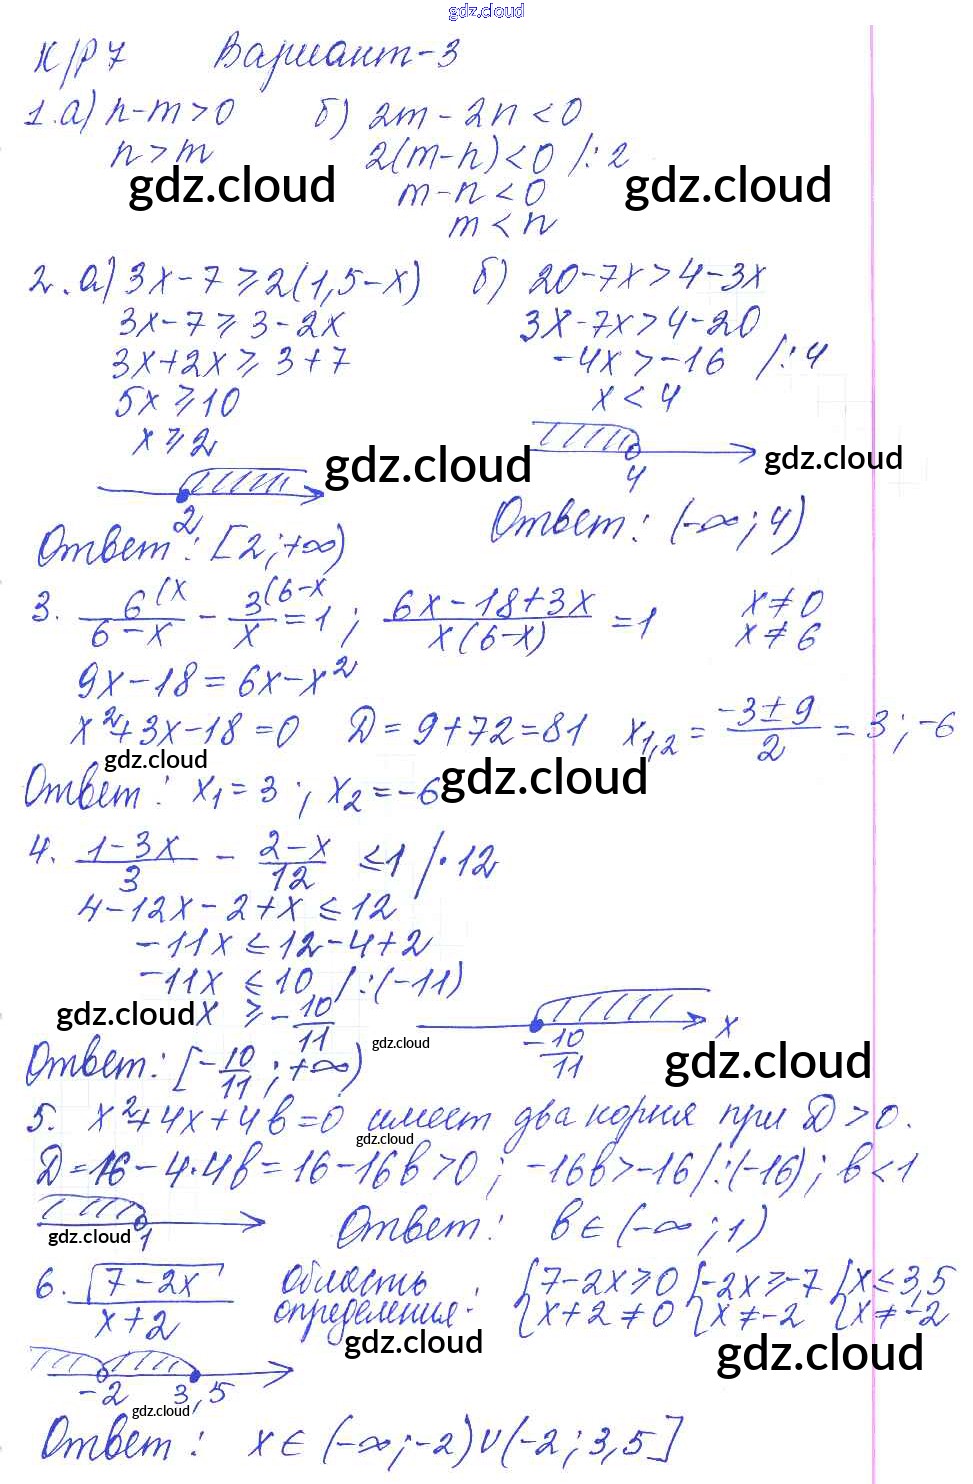 gdz.cloud
К/Р 7 Вариант-3
1.а) n-m>0 б) 2m-2n<0
n>m 2(m-n)<0 /:2
gdz.cloud m-n<0 gdz.cloud
m<n
2.а) 3x-7⩾2(1,5-x) б) 20-7x>4-3x
3x-7⩾3-2x 3x-7x>4-20
3x+2x⩾3+7 -4x>-16 /:4
5x⩾10 x<4
x⩾2
gdz.cloud 4 gdz.cloud
2
Ответ: [2;+∞) Ответ: (-∞;4)
3. 6(x/6-x - 3(6-x/x = 1; 6x-18+3x/x(6-x) = 1 x≠0
x≠6
9x-18=6x-x²
x²+3x-18=0 D=9+72=81 x1,2 = -3±9/2 = 3; -6
gdz.cloud
Ответ: x1=3; x2=-6 gdz.cloud
4. 1-3x/3 - 2-x/12 ⩽1 /·12
4-12x-2+x⩽12
-11x⩽12-4+2
-11x⩽10 /:(-11)
gdz.cloud x⩾-10/11 -10/11 x
gdz.cloud gdz.cloud
Ответ: [-10/11;+∞)
5. x²+4x+4b=0 имеет два корня при D>0.
gdz.cloud
D=16-4·4b=16-16b>0; -16b>-16 /:(-16); b<1
gdz.cloud 1 Ответ: b∈(-∞;1)
6. √7-2x/x+2 область определения: {7-2x⩾0 {-2x⩾-7 {x⩽3,5
{x+2≠0 {x≠-2 {x≠-2
gdz.cloud gdz.cloud
-2 3,5
gdz.cloud
Ответ: x∈(-∞;-2)∪(-2;3,5]